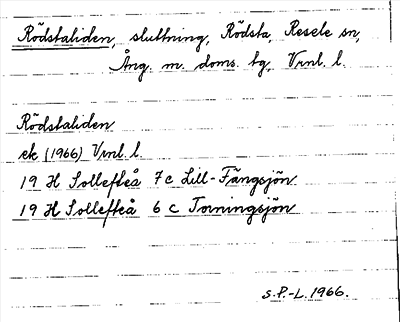 Rödstaliden, sluttning, Rödsta, Resele sn,
Ång. m. doms. tg, Vrnl. l.
Rödstaliden
ek (1966) Vrnl. l.
19 H Sollefteå 7c Lill-Fängsjön
19 H Sollefteå 6 c Torningsjön
S.P.-L. 1966.